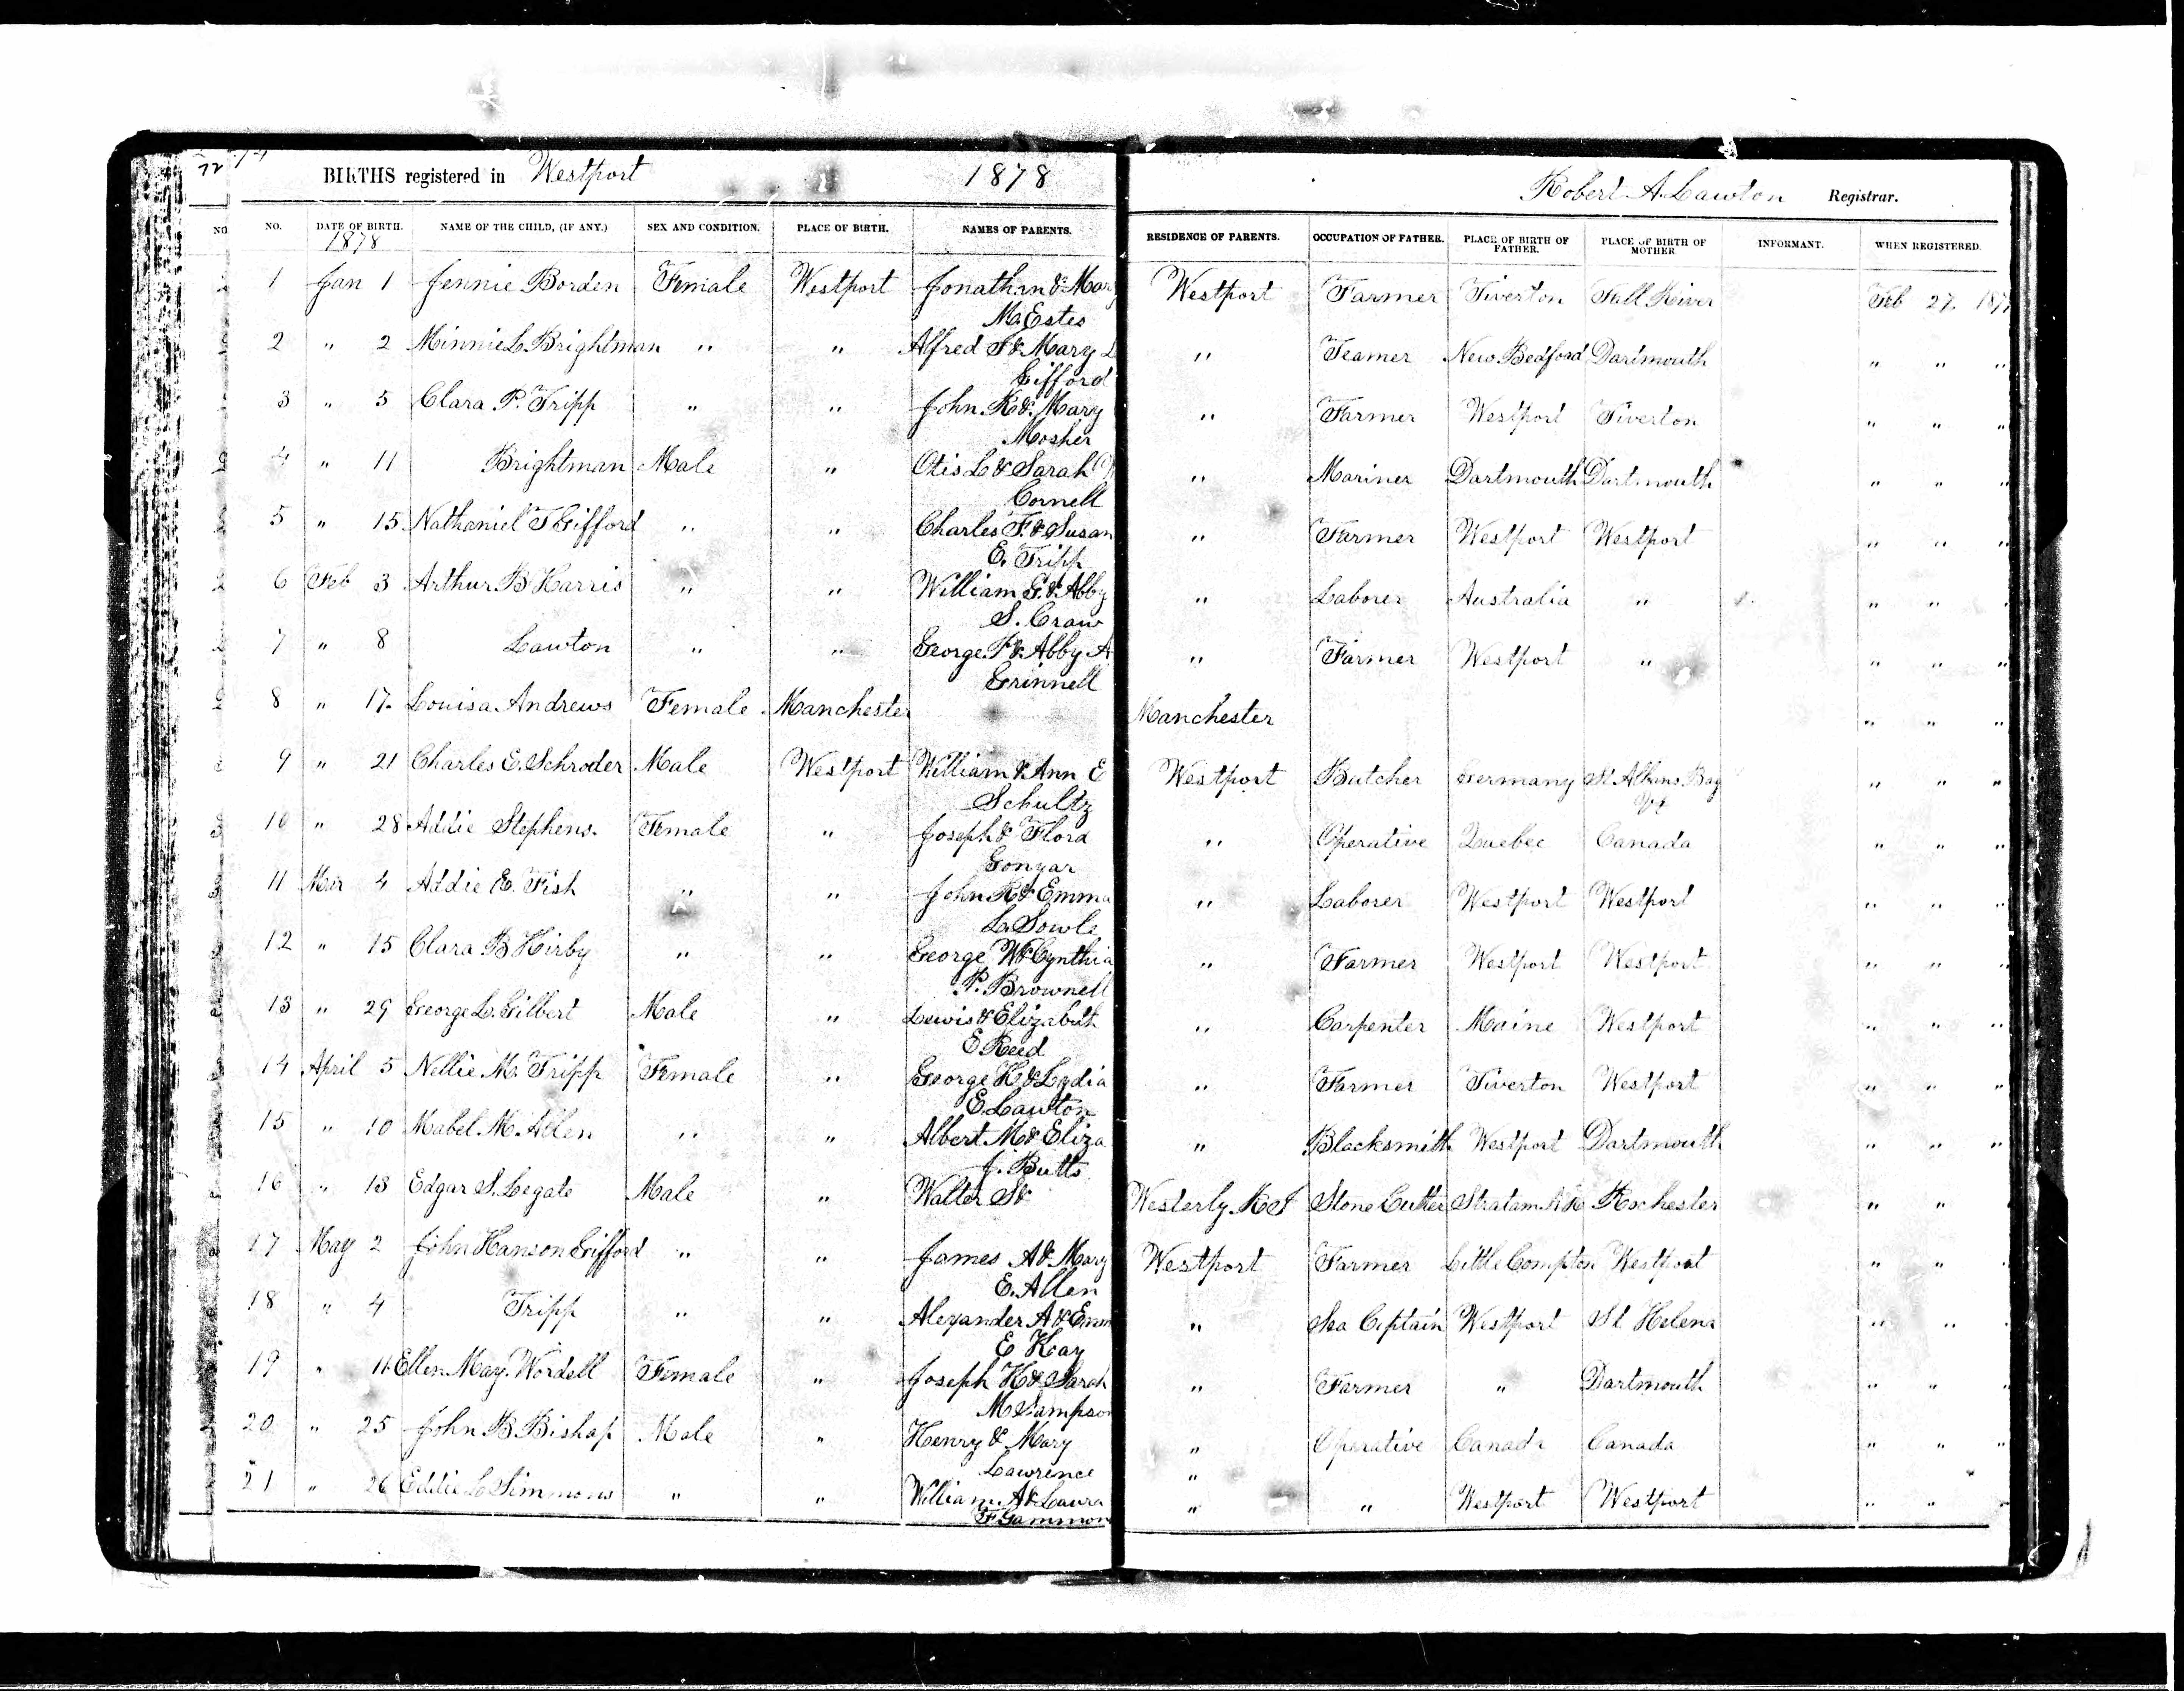 72
BIRTHS registered in Westport 1878
Robert A. Lawton Registrar.
NO. DATE OF BIRTH. NAME OF THE CHILD, (IF ANY.) SEX AND CONDITION. PLACE OF BIRTH. NAMES OF PARENTS. RESIDENCE OF PARENTS. OCCUPATION OF FATHER. PLACE OF BIRTH OF FATHER. PLACE OF BIRTH OF MOTHER. INFORMANT. WHEN REGISTERED.
1878
1 Jan 1 Jennie Borden Female Westport Jonathan & Mary Westport Farmer Tiverton Fall River Feb 27. 187
M. Estes
2 " 2 Minnie L. Brightman " " Alfred S & Mary L " Teamer New Bedford Dartmouth " " "
Gifford
3 " 5 Clara P. Tripp " " John R & Mary " Farmer Westport Tiverton " " "
Mosher
4 " 11 Brightman Male " Otis L & Sarah " Mariner Dartmouth Dartmouth " " "
Cornell
5 " 15 Nathaniel T Gifford " " Charles F. & Susan " Farmer Westport Westport " " "
E. Tripp
6 Feb 3 Arthur B Harris " " William G. & Abby " Laborer Australia " " "
S. Craw
7 " 8 Lawton " " George P & Abby A " Farmer Westport " " " "
Grinnell
8 " 17. Louisa Andrews Female Manchester Manchester " " "
9 " 21 Charles E. Schroder Male Westport William & Ann E Westport Butcher Germany St. Albans Bay " " "
Schultz Vt
10 " 28 Addie Stephens. Female " Joseph & Flora " Operative Quebec Canada " " "
Gonyar
11 Mar 4 Addie E. Fish " " John R & Emma " Laborer Westport Westport " " "
L. Sowle
12 " 15 Clara B Kirby " " George W & Cynthia " Farmer Westport Westport " " "
P. Brownell
13 " 29 George L. Gilbert Male " Lewis & Elizabeth " Carpenter Maine Westport " " "
E Reed
14 April 5 Nellie M. Tripp Female " George H & Lydia " Farmer Tiverton Westport " " "
E. Lawton
15 " 10 Mabel M. Allen " " Albert M & Eliza " Blacksmith Westport Dartmouth " " "
J. Butts
16 " 13 Edgar S. Legate Male " Walter S & Westerly. R I Stone Cutter Stratam N H Rochester " "
17 May 2 John Hanson Gifford " " James A & Mary Westport Farmer Little Compton Westport " "
E. Allen
18 " 4 Tripp " " Alexander A & Emm " Sea Captain Westport St Helena " "
E Kay
19 " 11 Ellen May. Wordell Female " Joseph H & Sarah " Farmer " Dartmouth " " "
M Sampson
20 " 25 John B. Bishop Male " Henry & Mary " Operative Canada Canada " " "
Lawrence "
21 " 26 Eddie L Simmons " " William. A & Laura " " Westport Westport " " "
F Gammon